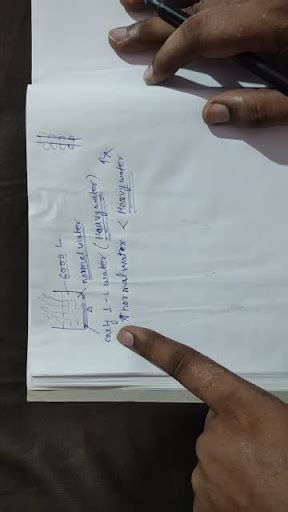 6000 L
normal water
only 1-L water (Heavy water)
normal water < Heavy water